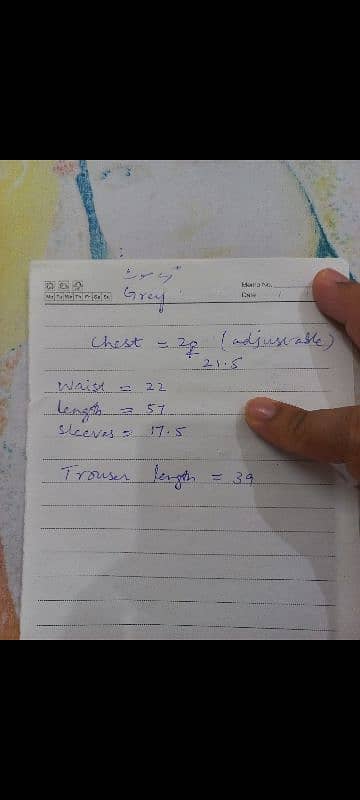 Grey
Memo No.
Mo Tu We Th Fr Sa Su
Date / /
Chest = 20 (adjustable)
21.5
Waist = 22
length = 57
Sleeves = 17.5
Trouser length = 39